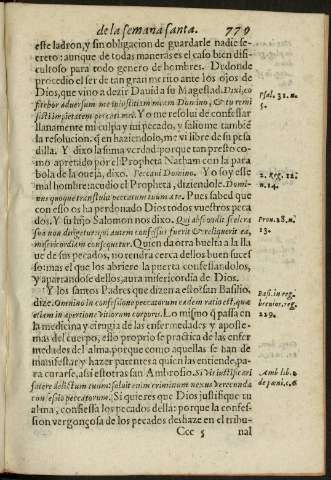 de la semana santa. 779
este ladron, y sin obligacion de guardarle nadie se-
creto: aunque de todas maneras es el caso bien difi-
cultoso para todo genero de hombres. De donde
procedio el ser de tan gran merito ante los ojos de
Dios, que vino a dezir Dauid a su Magestad. Dixi, co
fitebor aduersum me iniustitiam meam Domino, & tu remi
sisti impietatem peccati mei. Yo me resolui de confessar
llanamente mi culpa y mi pecado, y saliome tambiē
la resolucion, q̄ en haziendolo, me vi libre de su pesa
dilla. Y dixo la suma verdad: porque tan presto co-
mo apretado por el Propheta Natham con la para
bola de la oueja, dixo. Peccaui Domino. Yo soy esse
mal hombre: acudio el Propheta, diziendole. Domi-
nus quoque transtulit peccatum tuum à te. Pues sabed que
con esso os ha perdonado Dios todos vuestros peca
dos. Y su hijo Salomon nos dixo. Qui abscondit scelera
sua non dirigetur: qui autem confessus fuerit & reliquerit ea,
misericordiam consequetur. Quien da otra buelta a la lla
ue de sus pecados, no tendra cerca dellos buen suces
so: mas el que los abriere la puerta confessandolos,
y apartandose dellos, aura misericordia de Dios.
Y los santos Padres que dizen a esto? San Basilio,
dize. Omnino in confessione peccatorum eadem ratio est, quæ
etiam in apertione vitiorum corporis. Lo mismo q̄ passa en
la medicina y cirugia de las enfermedades y aposte-
mas del cuerpo, esso proprio se practica de las enfer
medades del alma, porque como aquellas se han de
manifestar y hazer parentes a quien las entiende, pa-
ra curarse, assi estotras san Ambrosio. Si vis iustificari
fatere delictum tuum: soluit enim criminum nexus verecunda
confessio peccatorum. Si quieres que Dios justifique su
alma, confiessa los pecados della: porque la confes-
sion vergonçosa de los pecados deshaze en el tribu-
Ccc 5 nal
Psal. 31. n.
5.
2. Reg. 12.
n. 14.
Prou. 28. n.
13.
Basi. in reg.
breuior. reg.
229.
Amb lib. 2
de pani. c. 6